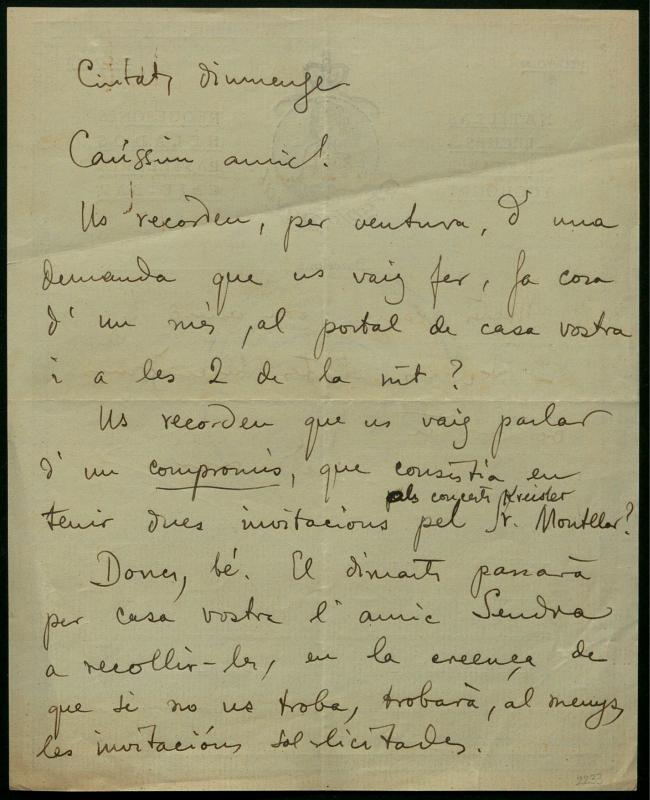 Ciutat, diumenge
Caríssim amic!
Us recorden, per ventura, d'una
demanda que us vaig fer, fa cosa
d'un més, al portal de casa vostra
i a les 2 de la nit?
Us recorden que us vaig parlar
d'un compromís, que consistía en
pels concerts Kreisler
tenir dues invitacions pel Sr. Montllor?
Doncs, bé. El dimarts passarà
per casa vostra l'amic Sendra
a recollir-les, en la creença de
que si no us troba, trobarà, al menys,
les invitacións sol·licitades.
2233